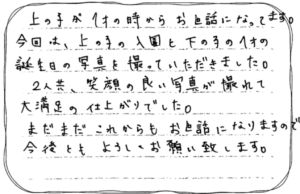 上の子が1才の時からお世話になってます。
今回は、上の子の入園と下の子の1才の
誕生日の写真を撮っていただきました。
2人共、笑顔の良い写真が撮れて
大満足の仕上がりでした。
まだまだこれからもお世話になりますので
今後ともよろしくお願い致します。